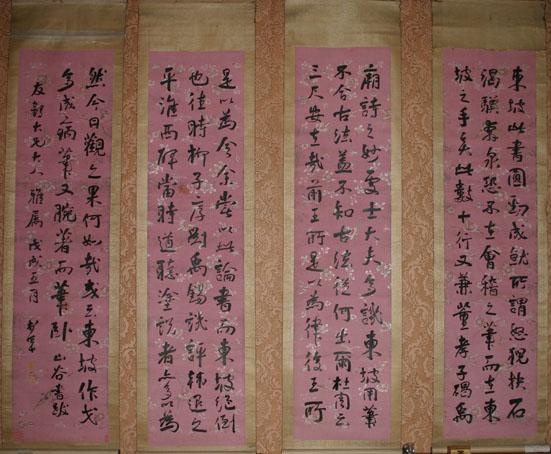 東坡此書圓勁成就所謂怒猊抉石
渴驥奔泉恐不在會稽之筆而在東
坡之手矣此數十行又兼董孝子碣禹
廟詩之妙處士大夫多譏東坡用筆
不合古法蓋不知古法從何出爾杜周云
三尺安在哉前王所是以為律後王所
是以為令余嘗以此論書而東坡絕倒
也往時柳子厚劉禹錫譏評韓退之
平淮西碑當時道聽塗說者亦為
然今日觀之果何如哉或云東坡作戈
多成病筆又腕著而筆臥 山谷書跋
友大兄大人 雅屬 戊戌五月